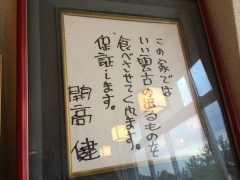 この家では
いい雲古の出るものを
食べさせてくれます。
保証します。
開高 健